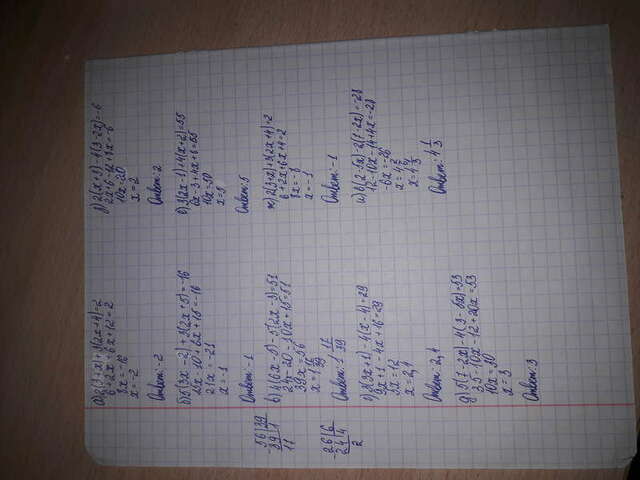 а) 2(3+x)+3(2x+4)=2
6+2x+6x+12=2
8x=-16
x=-2
Ответ: -2
б) 5(3x-2)+3(2x+5)=-16
15x-10+6x+15=-16
21x=-21
x=-1
Ответ: -1
56|39
39|1
17
в) 4(6x-5)-5(2x-3)=51
24x-20-10x+15=51
39x=56
x=1 17/39
26|6
24|4
2
Ответ: 1 17/39
г) 3(3x+1)-4(x-4)=29
9x+1-4x+16=29
5x=12
x=2,4
Ответ: 2,4
д) 5(7-2x)-4(3-5x)=53
35-10x-12+20x=53
10x=30
x=3
Ответ: 3
2(x+3)-4(3-2x)=-6
2x+6-12+8x=-6
10x=20
x=2
Ответ: 2
е) 3(2x-1)+4(x+2)=55
6x-3+4x+8=55
10x=50
x=5
Ответ: 5
ж) 2(3+x)+3(2x+4)=2
6+2x+6x+4=2
8x=-8
x=-1
Ответ: -1
и) 6(2-5x)-2(7-2x)=-28
12-10x-14+4x=-28
-6x=-26
x=4 2/6
x=4 1/3
Ответ: 4 1/3